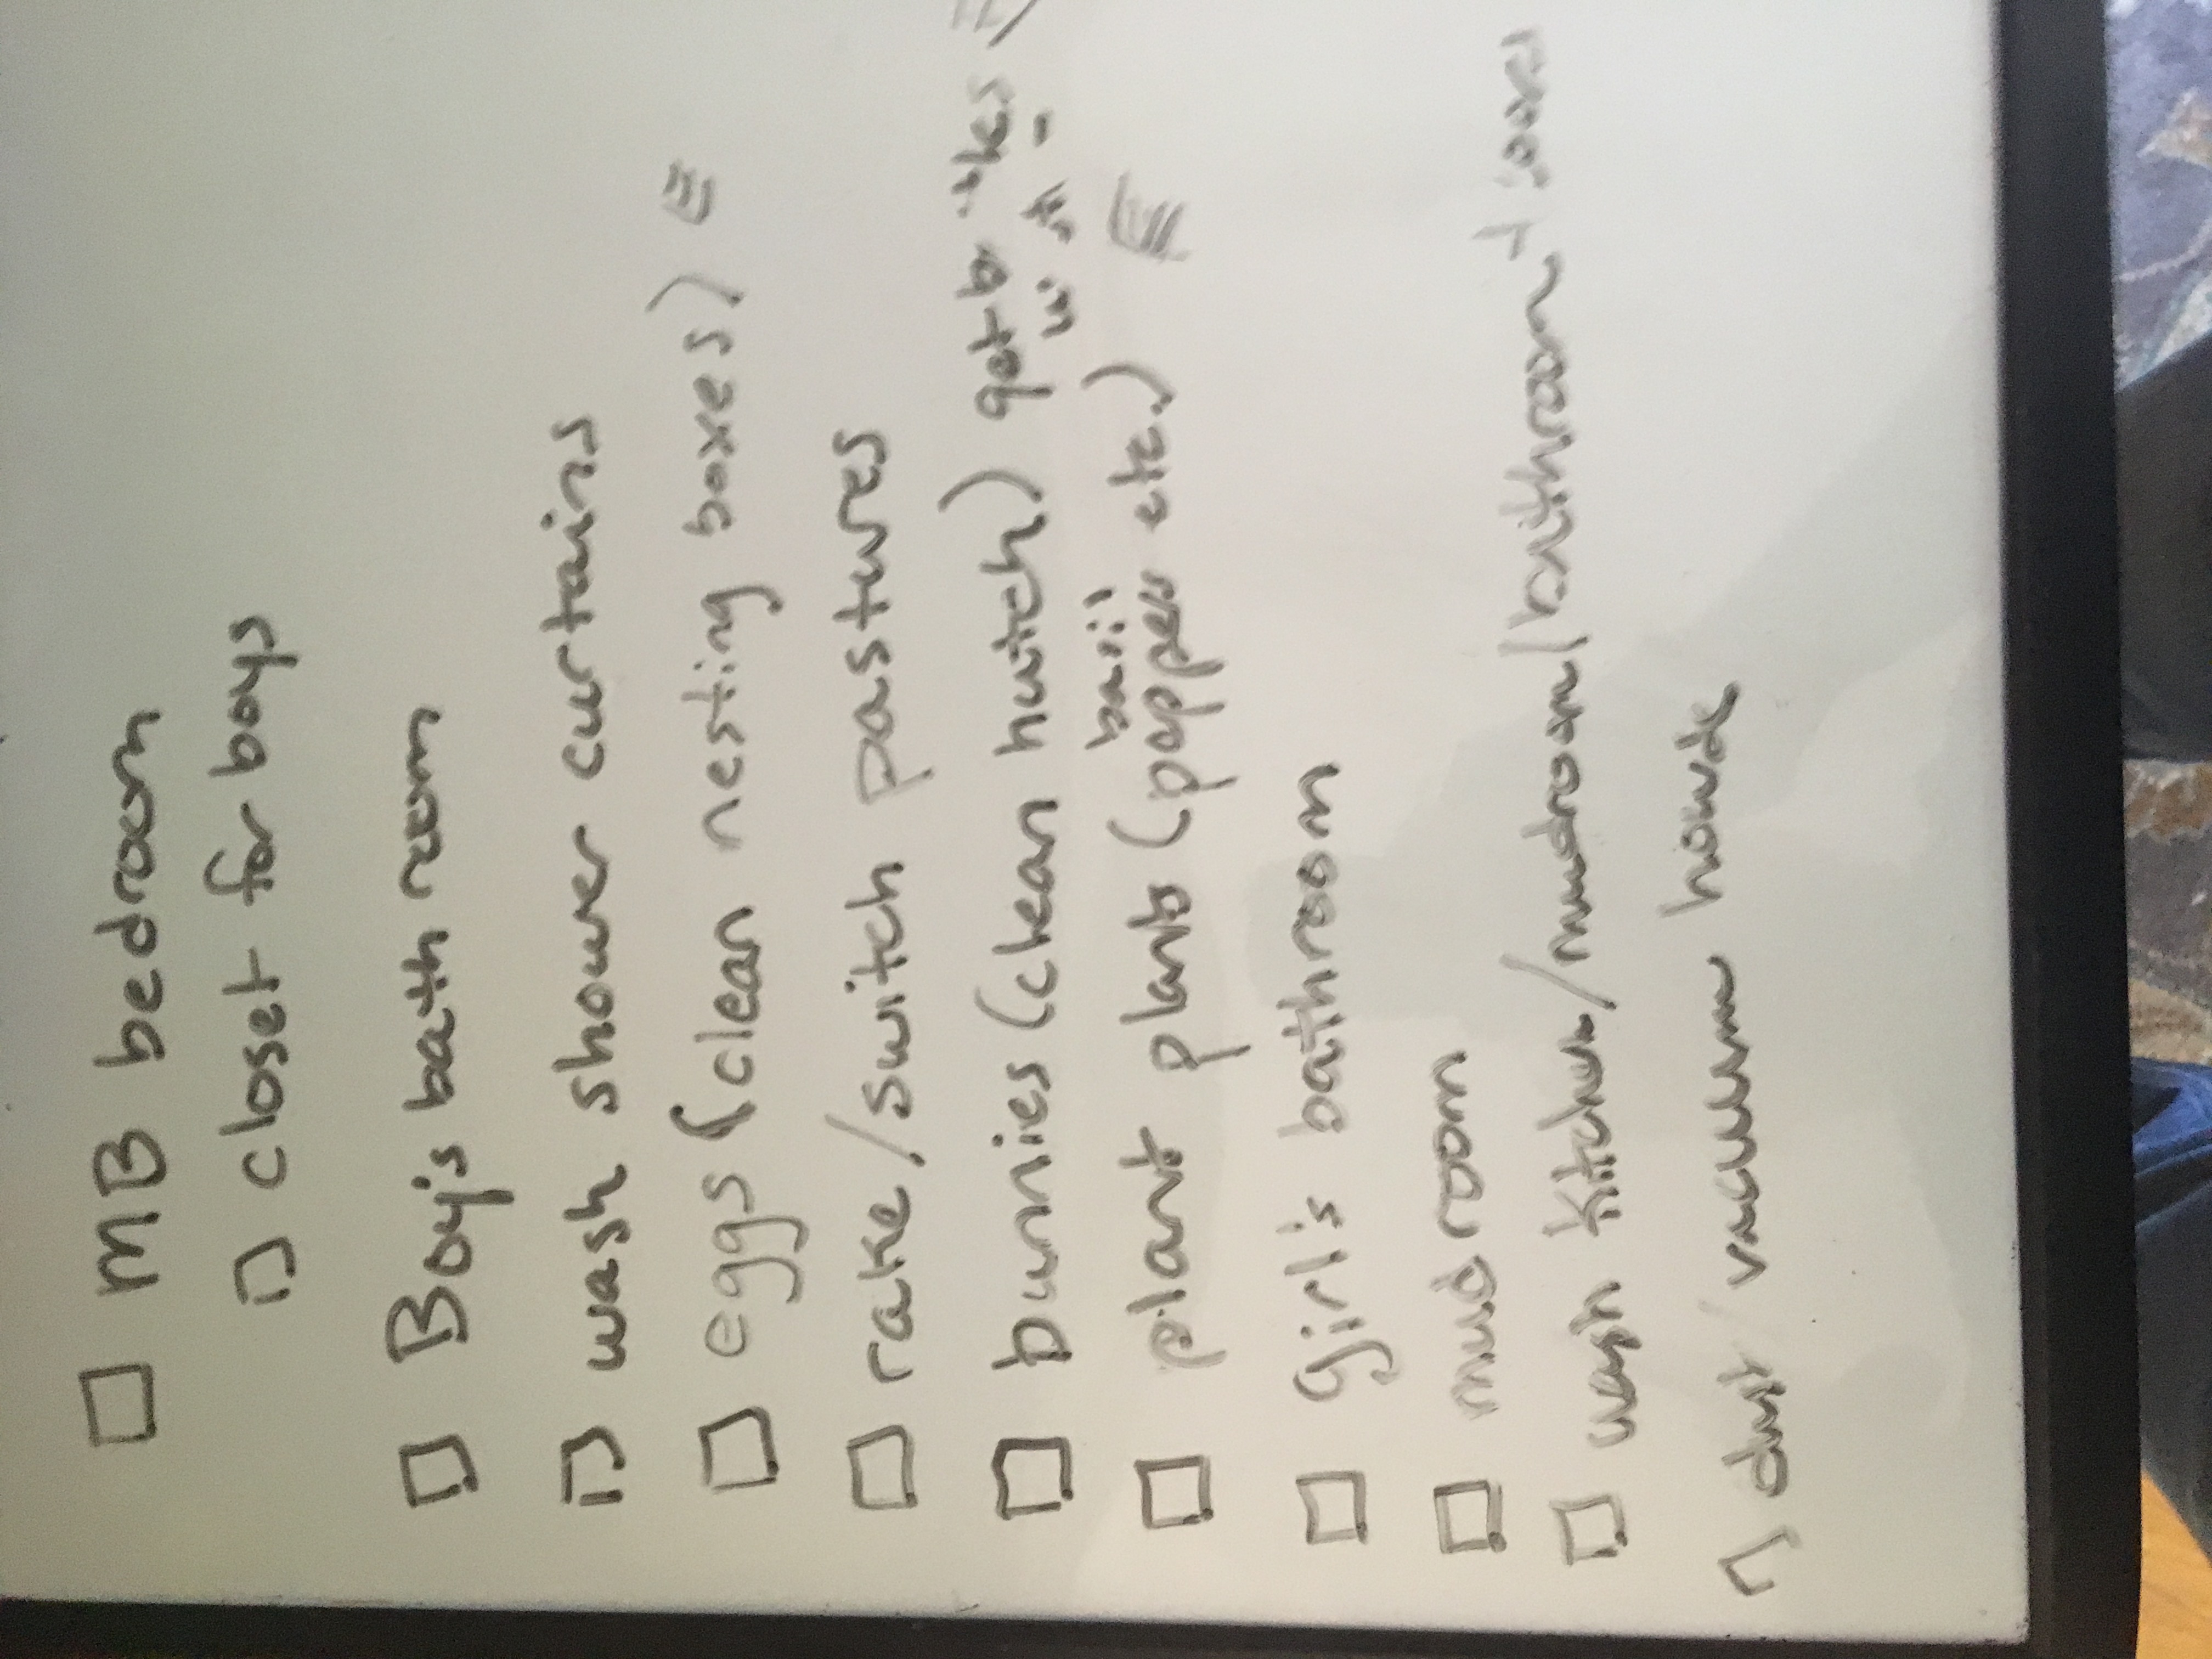 MB bedroom
closet for boys
Boy's bathroom
wash shower curtains
eggs (clean nesting boxes)
rake/switch pastures
bunnies (clean hutch)
basil
plant plants (pepper etc.)
girl's bathroom
mud room
wash kitchen/mudroom/bathroom
dust vacuum house